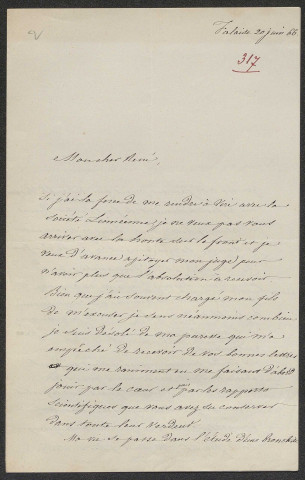 Falaise 20 juin 66
317
Mon cher René,
Si j'ai la force de me rendre à Vire avec la
Société Linnéenne, je ne veux pas vous
arriver avec la honte sur le front et je
veux d'avance apitoyer mon juge pour
n'avoir plus que l'absolution à recevoir.
Bien que j'aie souvent chargé mon fils
de m'excuser, je sens néanmoins combien
je suis désolé de ma paresse qui m'a
empêché de recevoir de vos bonnes lettres
qui me raniment en me faisant d'abord
jouir par le cœur et par les rapports
scientifiques que vous avez su conserver
dans toute leur verdeur.
Ma vie se passe dans l'étude d'une